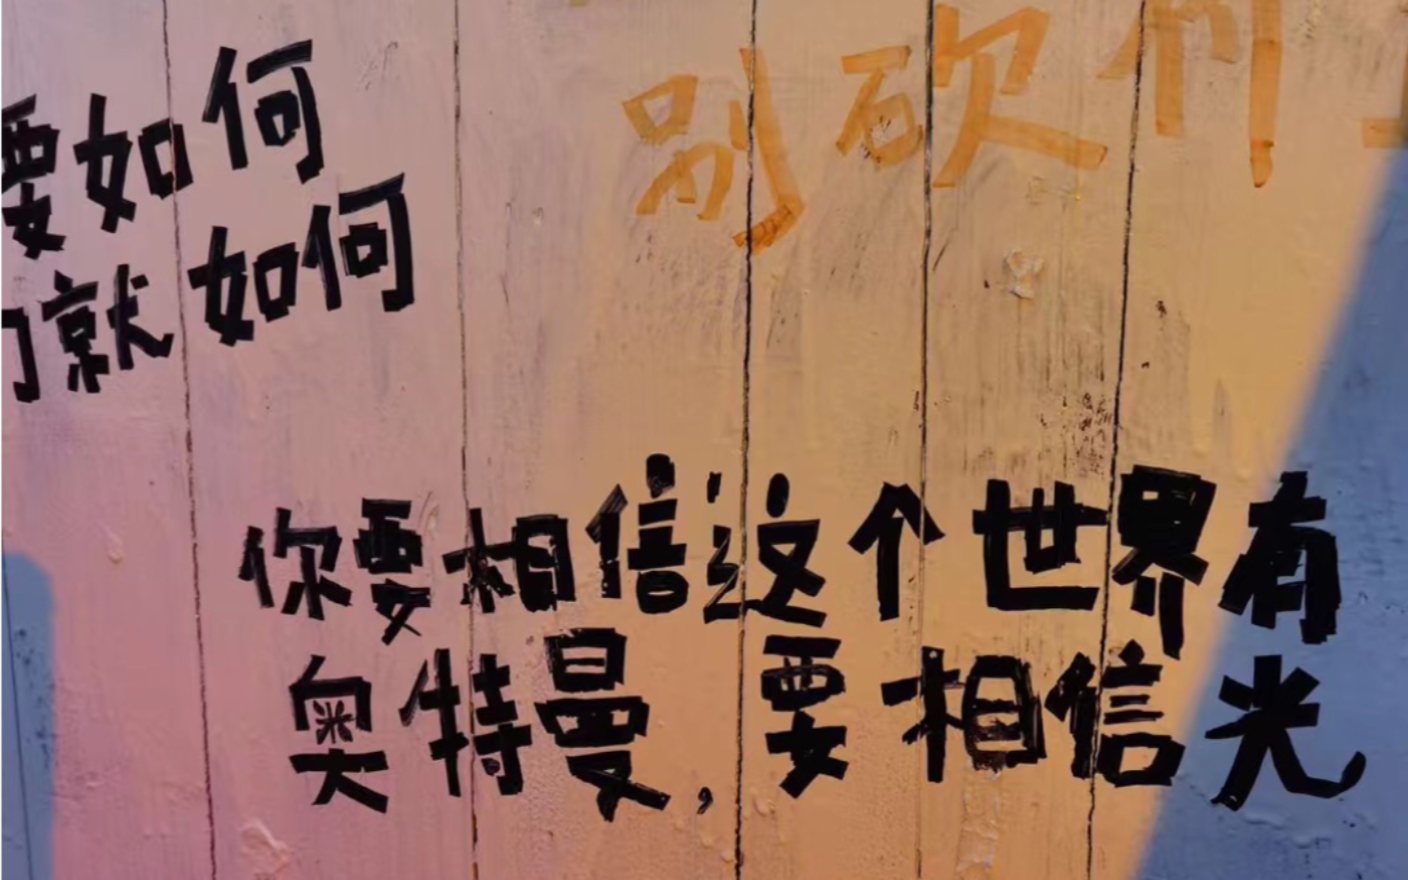 要如何
们就如何
别砍们
你要相信这个世界有
奥特曼,要相信光